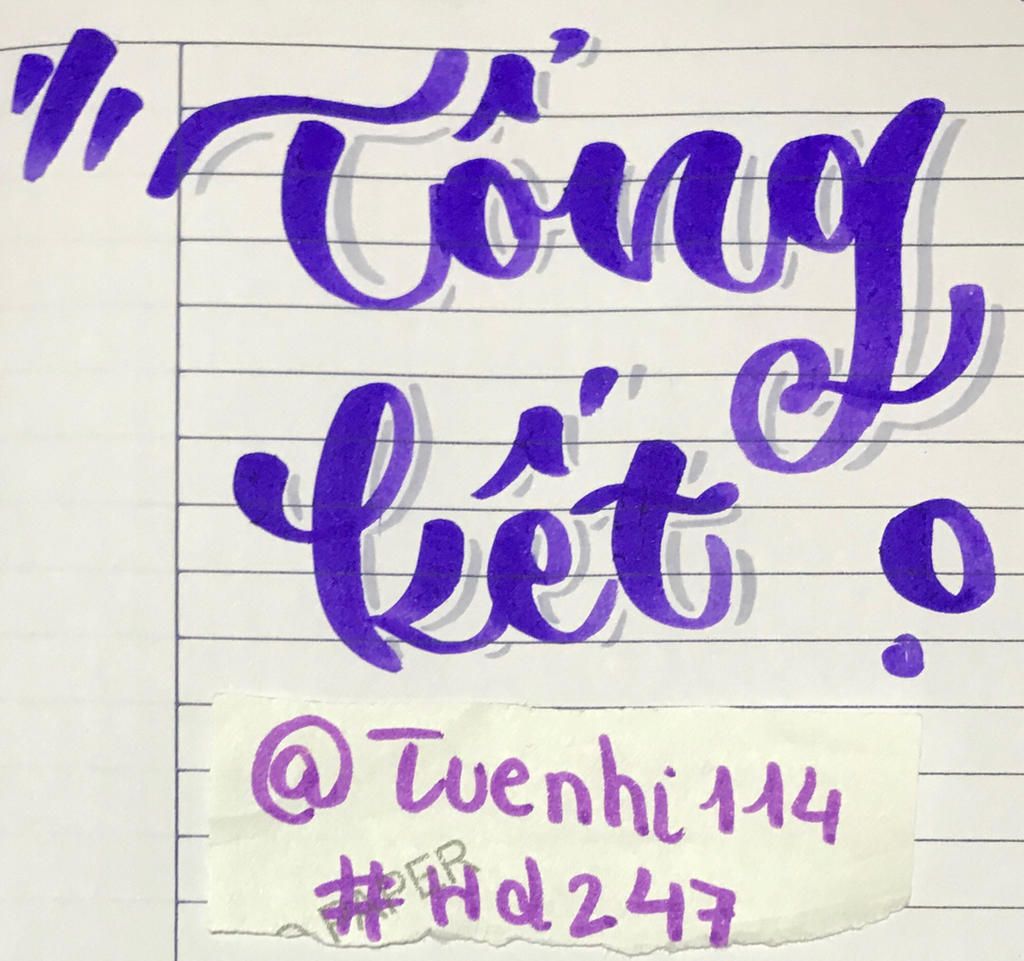 Tổng
kết
@Tuenhi114
#Hd247
PAPER